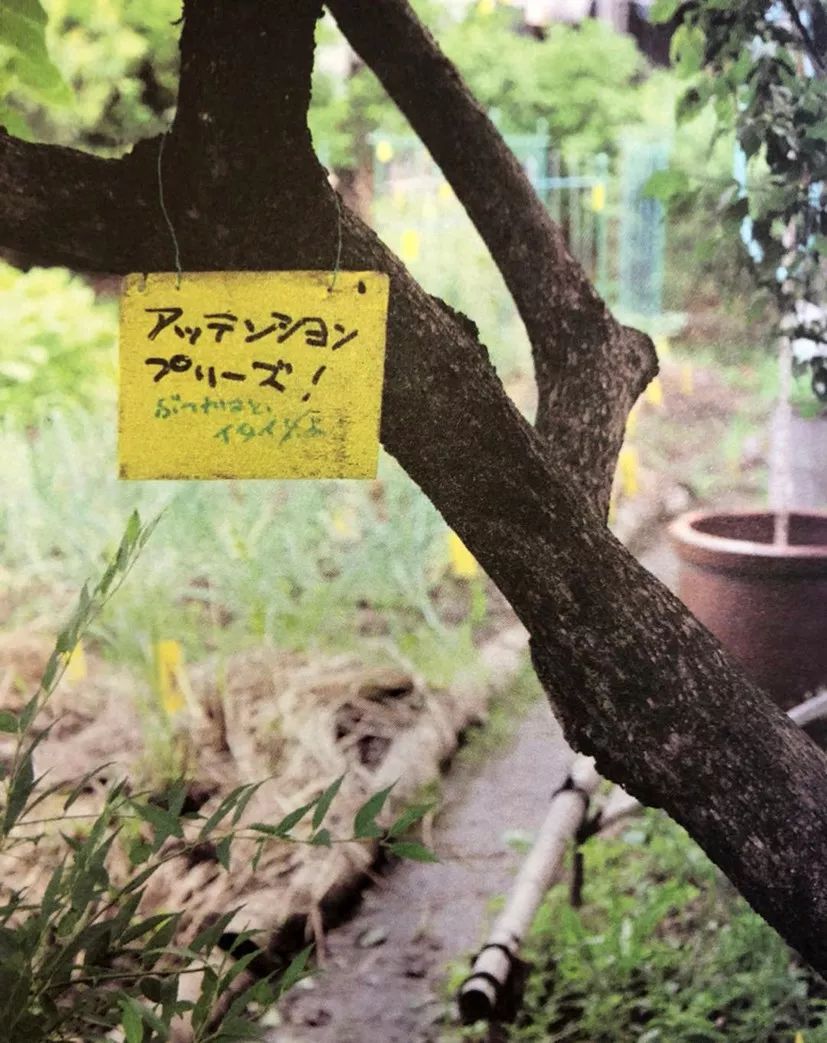 アッテンション
プリーズ!
ぶつかると、
イタイヨ